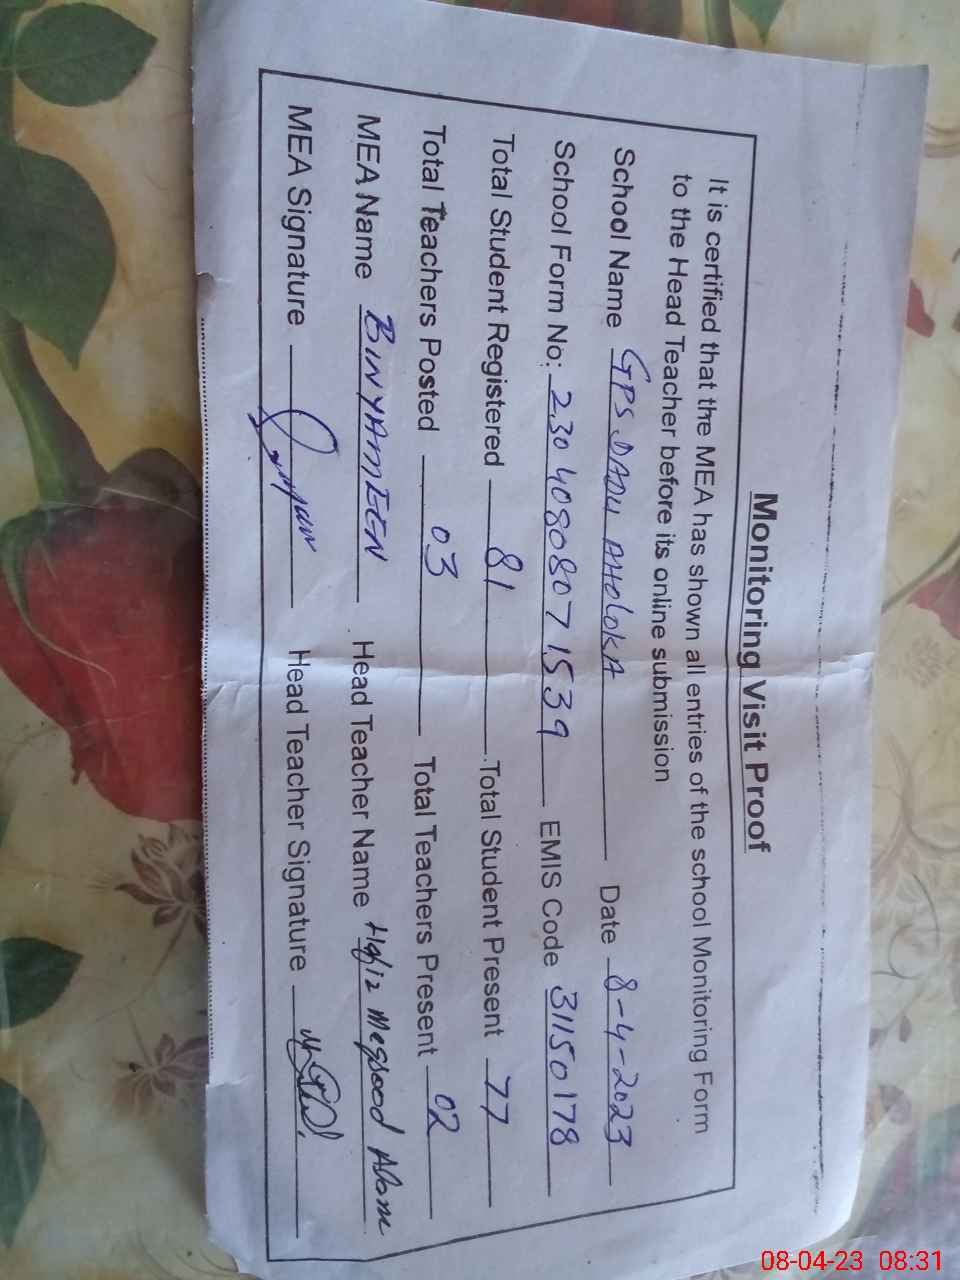 Monitoring Visit Proof
It is certified that the MEA has shown all entries of the school Monitoring Form
to the Head Teacher before its online submission
School Name GPS DADU AHOLOKA Date 8-4-2023
School Form No: 2304080807 1539 EMIS Code 31150178
Total Student Registered 81 Total Student Present 77
Total Teachers Posted 03 Total Teachers Present 02
MEA Name BINYAMEEN Head Teacher Name Hafiz Maqsood Alam
MEA Signature Head Teacher Signature
08-04-23 08:31